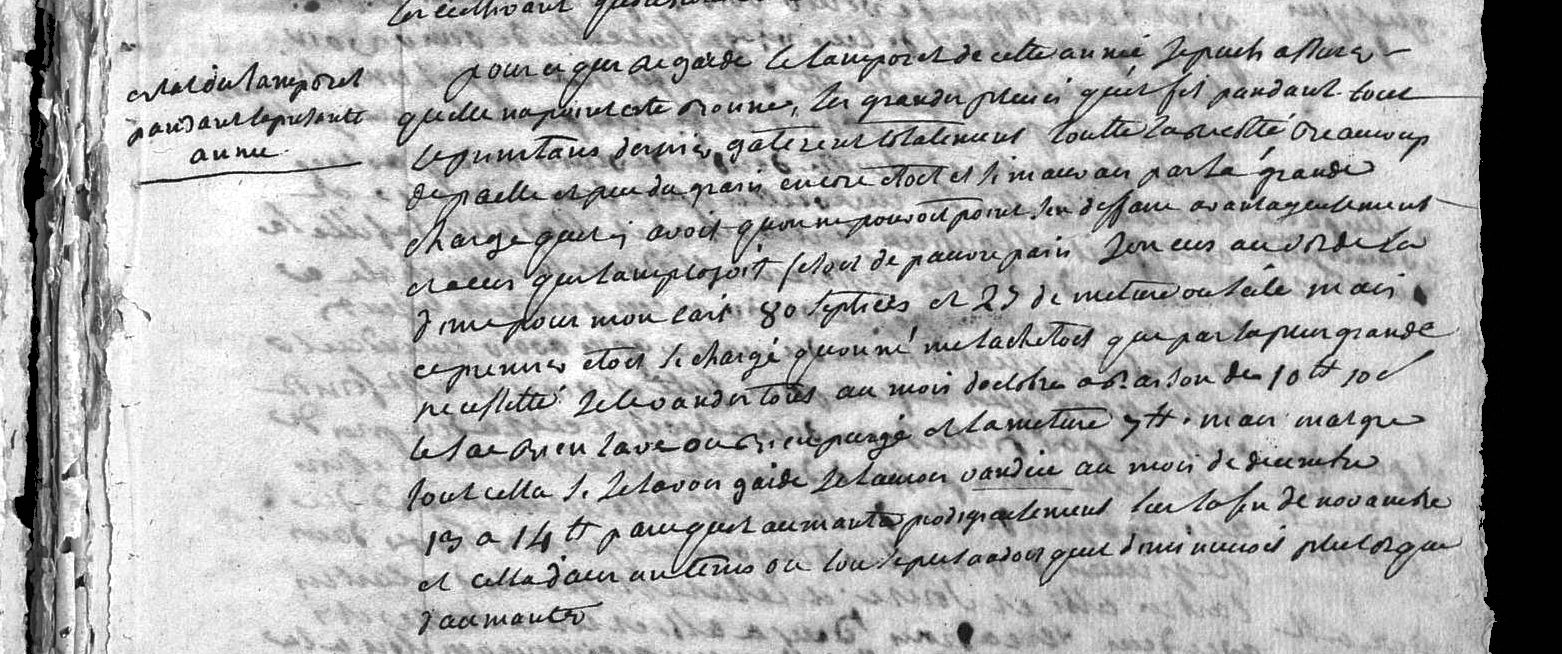 etat du tamporel
pandant la presente
année
pour ce qui regarde le tamporel de cette année je puis assurer
quelle na point esté bonne, les grandes pluies quil fit pandant tout
le printans dernier gaterent totalement toutte la recolte beaucoup
de paelle et peu du grain encore etoit il si mauvais par la grande
charge quil y avoit quon ne pouvoit point s'en deffaire avantageusement
et a ceux qui lamployoit setoit de pauvre pain jen eus au de la
dime pour mon cart 80 septiers et 25 de meture ou seile mais
ce premier etoit si chargé quon né me lachetoit que par la plus grande
necessitté je le vandis tous au mois doctobre a raison de 10 tt 10 s
le sac bien lavé ou bien purgé et la meture 7 tt. mais malgre
tout cella si je lavois gardé je laurois vandue au mois de decembre
13 a 14 tt parce quil aumanta prodigieusement sur la fin de novambre
et cella dans un tems ou lon seput a voir quil diminueroit plutot que
daumanter